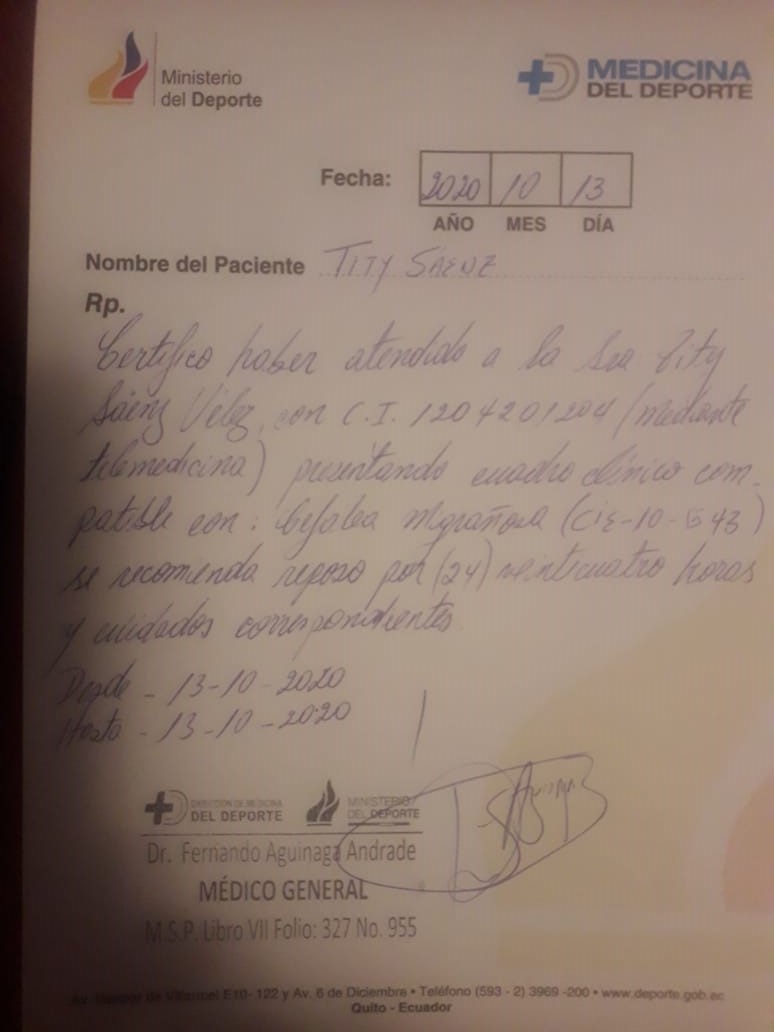 Ministerio
del Deporte
MEDICINA
DEL DEPORTE
Fecha: 2020 10 13
AÑO MES DÍA
Nombre del Paciente TITY SÁENZ
Rp.
Certifico haber atendido a la Sra Tity
Sáenz Vélez, con C.I. 1204201204 (mediante
telemedicina) presentando cuadro clínico com-
patible con: Cefalea Migrañosa (CIE-10-G43)
se recomienda reposo por (24) veinticuatro horas
y cuidados correspondientes.
Desde - 13-10-2020
Hasta - 13-10-2020
DIRECCIÓN DE MEDICINA
DEL DEPORTE
MINISTERIO
DEL DEPORTE
Dr. Fernando Aguinaga Andrade
MÉDICO GENERAL
M.S.P. Libro VII Folio: 327 No. 955
Av. Gaspar de Villarroel E10-122 y Av. 6 de Diciembre • Teléfono (593 - 2) 3969 -200 • www.deporte.gob.ec
Quito - Ecuador